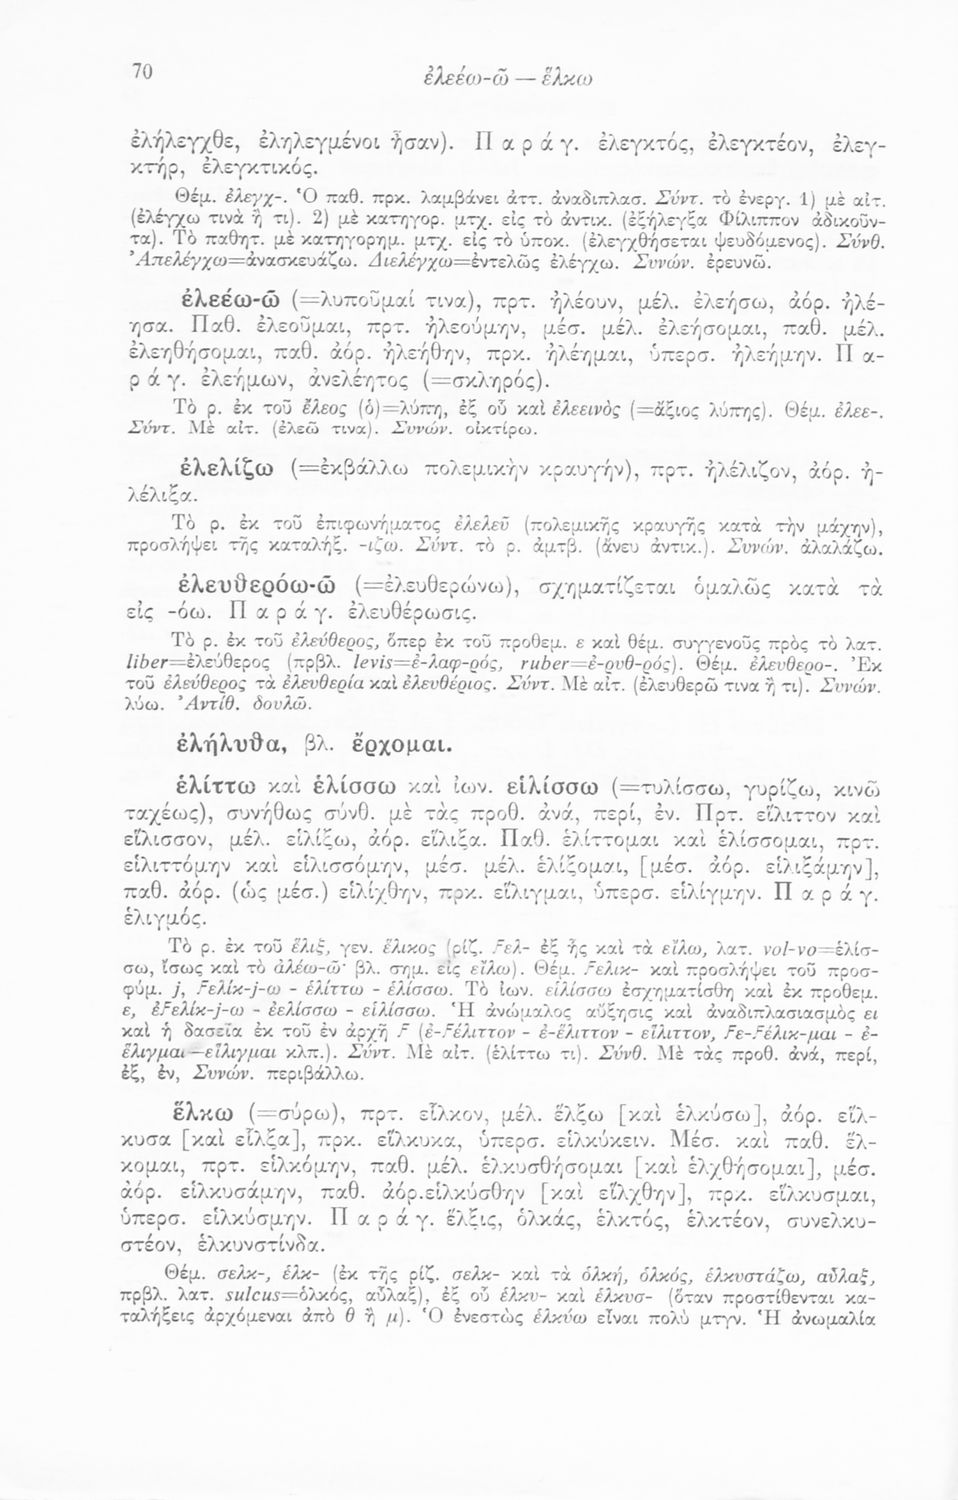 70
ἐλεέω-ῶ — ἕλκω
ἐλήλεγχθε, ἐληλεγμένοι ἦσαν). Π α ρ ά γ. ἐλεγκτός, ἐλεγκτέον, ἐλεγ-
κτήρ, ἐλεγκτικός.
Θέμ. ἐλεγχ-. Ὁ παθ. πρκ. λαμβάνει ἀττ. ἀναδιπλασ. Σύντ. τὸ ἐνεργ. 1) μὲ αἰτ.
(ἐλέγχω τινὰ ἤ τι). 2) μὲ κατηγορ. μτχ. εἰς τὸ ἀντικ. (ἐξήλεγξα Φίλιππον ἀδικοῦν-
τα). Τὸ παθητ. μὲ κατηγορημ. μτχ. εἰς τὸ ὑποκ. (ἐλεγχθήσεται ψευδόμενος). Σύνθ.
Ἀπελέγχω=ἀνασκευάζω. Διελέγχω=ἐντελῶς ἐλέγχω. Συνών. ἐρευνῶ.
ἐλεέω-ῶ (=λυποῦμαί τινα), πρτ. ἠλέουν, μέλ. ἐλεήσω, ἀόρ. ἠλέ-
ησα. Παθ. ἐλεοῦμαι, πρτ. ἠλεούμην, μέσ. μέλ. ἐλεήσομαι, παθ. μέλ.
ἐλεηθήσομαι, παθ. ἀόρ. ἠλεήθην, πρκ. ἠλέημαι, ὑπερσ. ἠλεήμην. Π α-
ρ ά γ. ἐλεήμων, ἀνελέητος (=σκληρός).
Τὸ ρ. ἐκ τοῦ ἔλεος (ὁ)=λύπη, ἐξ οὗ καὶ ἐλεεινὸς (=ἄξιος λύπης). Θέμ. ἐλεε-.
Σύντ. Μὲ αἰτ. (ἐλεῶ τινα). Συνών. οἰκτίρω.
ἐλελίζω (=ἐκβάλλω πολεμικὴν κραυγήν), πρτ. ἠλέλιζον, ἀόρ. ἠ-
λέλιξα.
Τὸ ρ. ἐκ τοῦ ἐπιφωνήματος ἐλελεῦ (πολεμικῆς κραυγῆς κατὰ τὴν μάχην),
προσλήψει τῆς καταλήξ. -ιζω. Σύντ. τὸ ρ. ἀμτβ. (ἄνευ ἀντικ.). Συνών. ἀλαλάζω.
ἐλευθερόω-ῶ (=ἐλευθερώνω), σχηματίζεται ὁμαλῶς κατὰ τὰ
εἰς -όω. Π α ρ ά γ. ἐλευθέρωσις.
Τὸ ρ. ἐκ τοῦ ἐλεύθερος, ὅπερ ἐκ τοῦ προθεμ. ε καὶ θέμ. συγγενοῦς πρὸς τὸ λατ.
liber=ἐλεύθερος (πρβλ. levis=ἐ-λαφ-ρός, ruber=ἐ-ρυθ-ρός). Θέμ. ἐλευθερο-. Ἐκ
τοῦ ἐλεύθερος τὰ ἐλευθερία καὶ ἐλευθέριος. Σύντ. Μὲ αἰτ. (ἐλευθερῶ τινα ἤ τι). Συνών.
λύω. Ἀντίθ. δουλῶ.
ἐλήλυθα, βλ. ἔρχομαι.
ἑλίττω καὶ ἑλίσσω καὶ ἰων. εἱλίσσω (=τυλίσσω, γυρίζω, κινῶ
ταχέως), συνήθως σύνθ. μὲ τὰς προθ. ἀνά, περί, ἐν. Πρτ. εἵλιττον καὶ
εἵλισσον, μέλ. εἱλίξω, ἀόρ. εἵλιξα. Παθ. ἑλίττομαι καὶ ἑλίσσομαι, πρτ.
εἱλιττόμην καὶ εἱλισσόμην, μέσ. μέλ. ἑλίξομαι, [μέσ. ἀόρ. εἱλιξάμην],
παθ. ἀόρ. (ὡς μέσ.) εἱλίχθην, πρκ. εἵλιγμαι, ὑπερσ. εἱλίγμην. Π α ρ ά γ.
ἑλιγμός.
Τὸ ρ. ἐκ τοῦ ἕλιξ, γεν. ἕλικος (ρίζ. Fελ- ἐξ ἧς καὶ τὰ εἴλω, λατ. vol-vo=ἑλίσ-
σω, ἴσως καὶ τὸ ἀλέω-ῶ· βλ. σημ. εἰς εἴλω). Θέμ. Fελικ- καὶ προσλήψει τοῦ προσ-
φύμ. j, Fελίκ-j-ω - ἑλίττω - ἑλίσσω. Τὸ ἰων. εἱλίσσω ἐσχηματίσθη καὶ ἐκ προθεμ.
ε, ἐFελίκ-j-ω - ἐελίσσω - εἱλίσσω. Ἡ ἀνώμαλος αὔξησις καὶ ἀναδιπλασιασμὸς ει
καὶ ἡ δασεῖα ἐκ τοῦ ἐν ἀρχῇ F (ἐ-Fέλιττον - ἐ-ἕλιττον - εἵλιττον, Fε-Fέλικ-μαι - ἐ-
ἕλιγμαι—εἵλιγμαι κλπ.). Σύντ. Μὲ αἰτ. (ἑλίττω τι). Σύνθ. Μὲ τὰς προθ. ἀνά, περί,
ἐξ, ἐν, Συνών. περιβάλλω.
ἕλκω (=σύρω), πρτ. εἷλκον, μέλ. ἕλξω [καὶ ἑλκύσω], ἀόρ. εἵλ-
κυσα [καὶ εἷλξα], πρκ. εἵλκυκα, ὑπερσ. εἱλκύκειν. Μέσ. καὶ παθ. ἕλ-
κομαι, πρτ. εἱλκόμην, παθ. μέλ. ἑλκυσθήσομαι [καὶ ἑλχθήσομαι], μέσ.
ἀόρ. εἱλκυσάμην, παθ. ἀόρ.εἱλκύσθην [καὶ εἵλχθην], πρκ. εἵλκυσμαι,
ὑπερσ. εἱλκύσμην. Π α ρ ά γ. ἕλξις, ὁλκάς, ἑλκτός, ἑλκτέον, συνελκυ-
στέον, ἑλκυνστίνδα.
Θέμ. σελκ-, ἑλκ- (ἐκ τῆς ρίζ. σελκ- καὶ τὰ ὁλκή, ὁλκός, ἑλκυστάζω, αὖλαξ,
πρβλ. λατ. sulcus=ὁλκός, αὖλαξ), ἐξ οὗ ἑλκυ- καὶ ἑλκυσ- (ὅταν προστίθενται κα-
ταλήξεις ἀρχόμεναι ἀπὸ θ ἢ μ). Ὁ ἐνεστὼς ἑλκύω εἶναι πολὺ μτγν. Ἡ ἀνωμαλία